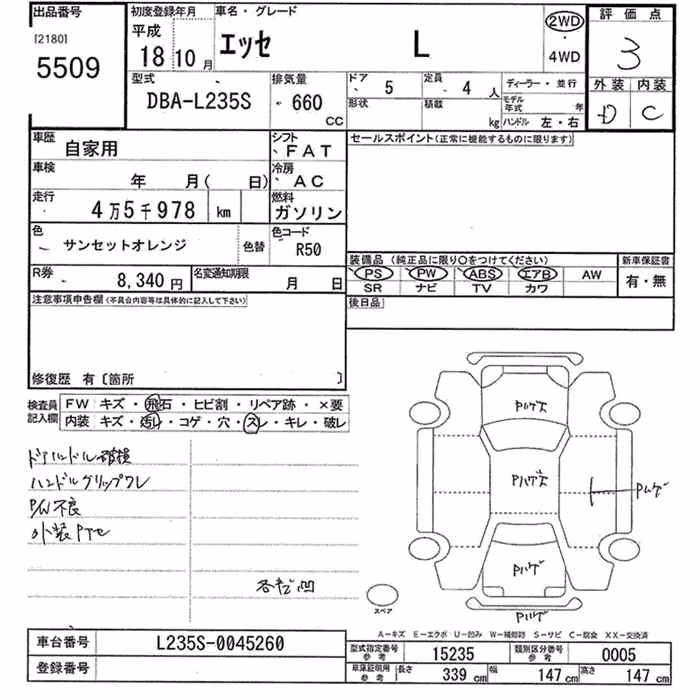 出品番号
[2180]
5509
初度登録年月
平成
18 10月
車名・グレード
エッセ L
2WD
・
4WD
評価点
3
外装 内装
D C
型式
DBA-L235S
排気量
660
CC
ドア
5
形状
定員
4 人
積載
kg
ディーラー・並行
モデル年式 年
ハンドル 左・右
車歴
自家用
シフト
FAT
車検
年 月( 日)
冷房
AC
走行
4万5千978 km
燃料
ガソリン
色
サンセットオレンジ
色替
色コード
R50
R券
8,340円
名変通知期限
月 日
セールスポイント(正常に機能するものに限ります)
装備品(純正品に限り○をつけてください)
PS PW ABS エアB AW
SR ナビ TV カワ
新車保証書
有・無
後日品
注意事項申告欄(不具合内容等は具体的に記入して下さい)
修復歴 有〔箇所 〕
検査員
記入欄
FW キズ・飛石・ヒビ割・リペア跡・×要
内装 キズ・汚れ・コゲ・穴・スレ・キレ・破レ
ドアハンドル破損
ハンドルグリップワレ
P/W不良
外装PTセ
各キズ凹
Pハゲズ
Pハゲズ
Pハゲ
Pハゲ
Pハゲ
スペア
A−キズ E−エクボ U−凹み W−補修跡 S−サビ C−腐食 XX−交換済
車台番号
L235S-0045260
登録番号
型式指定番号
参考
15235
類別区分番号
参考
0005
車庫証明用
参考
長さ 339 cm
幅 147 cm
高さ 147 cm